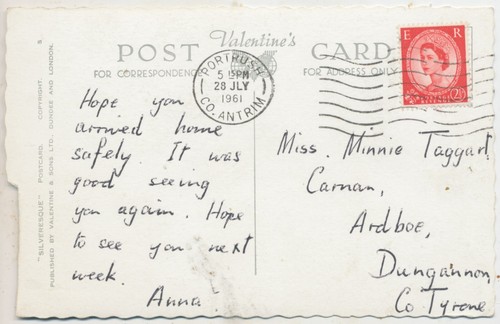 "SILVERESQUE" POSTCARD. COPYRIGHT. S
PUBLISHED BY VALENTINE & SONS LTD., DUNDEE AND LONDON.
POST Valentine's CARD
FOR CORRESPONDENCE FOR ADDRESS ONLY
PORTRUSH
5 15PM
28 JLY
1961
CO. ANTRIM
E R
2½
Hope you
arrived home
safely. It was
good seeing
you again. Hope
to see you next
week.
Anna.
Miss. Minnie Taggart
Carnan,
Ardboe,
Dungannon,
Co Tyrone